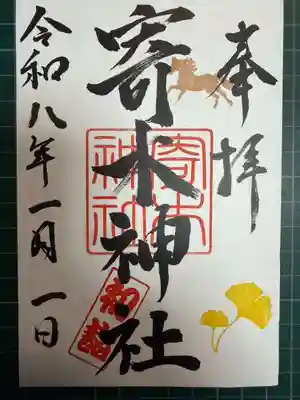 奉拝
寄木神社
寄木神社
初詣
令和八年一月一日